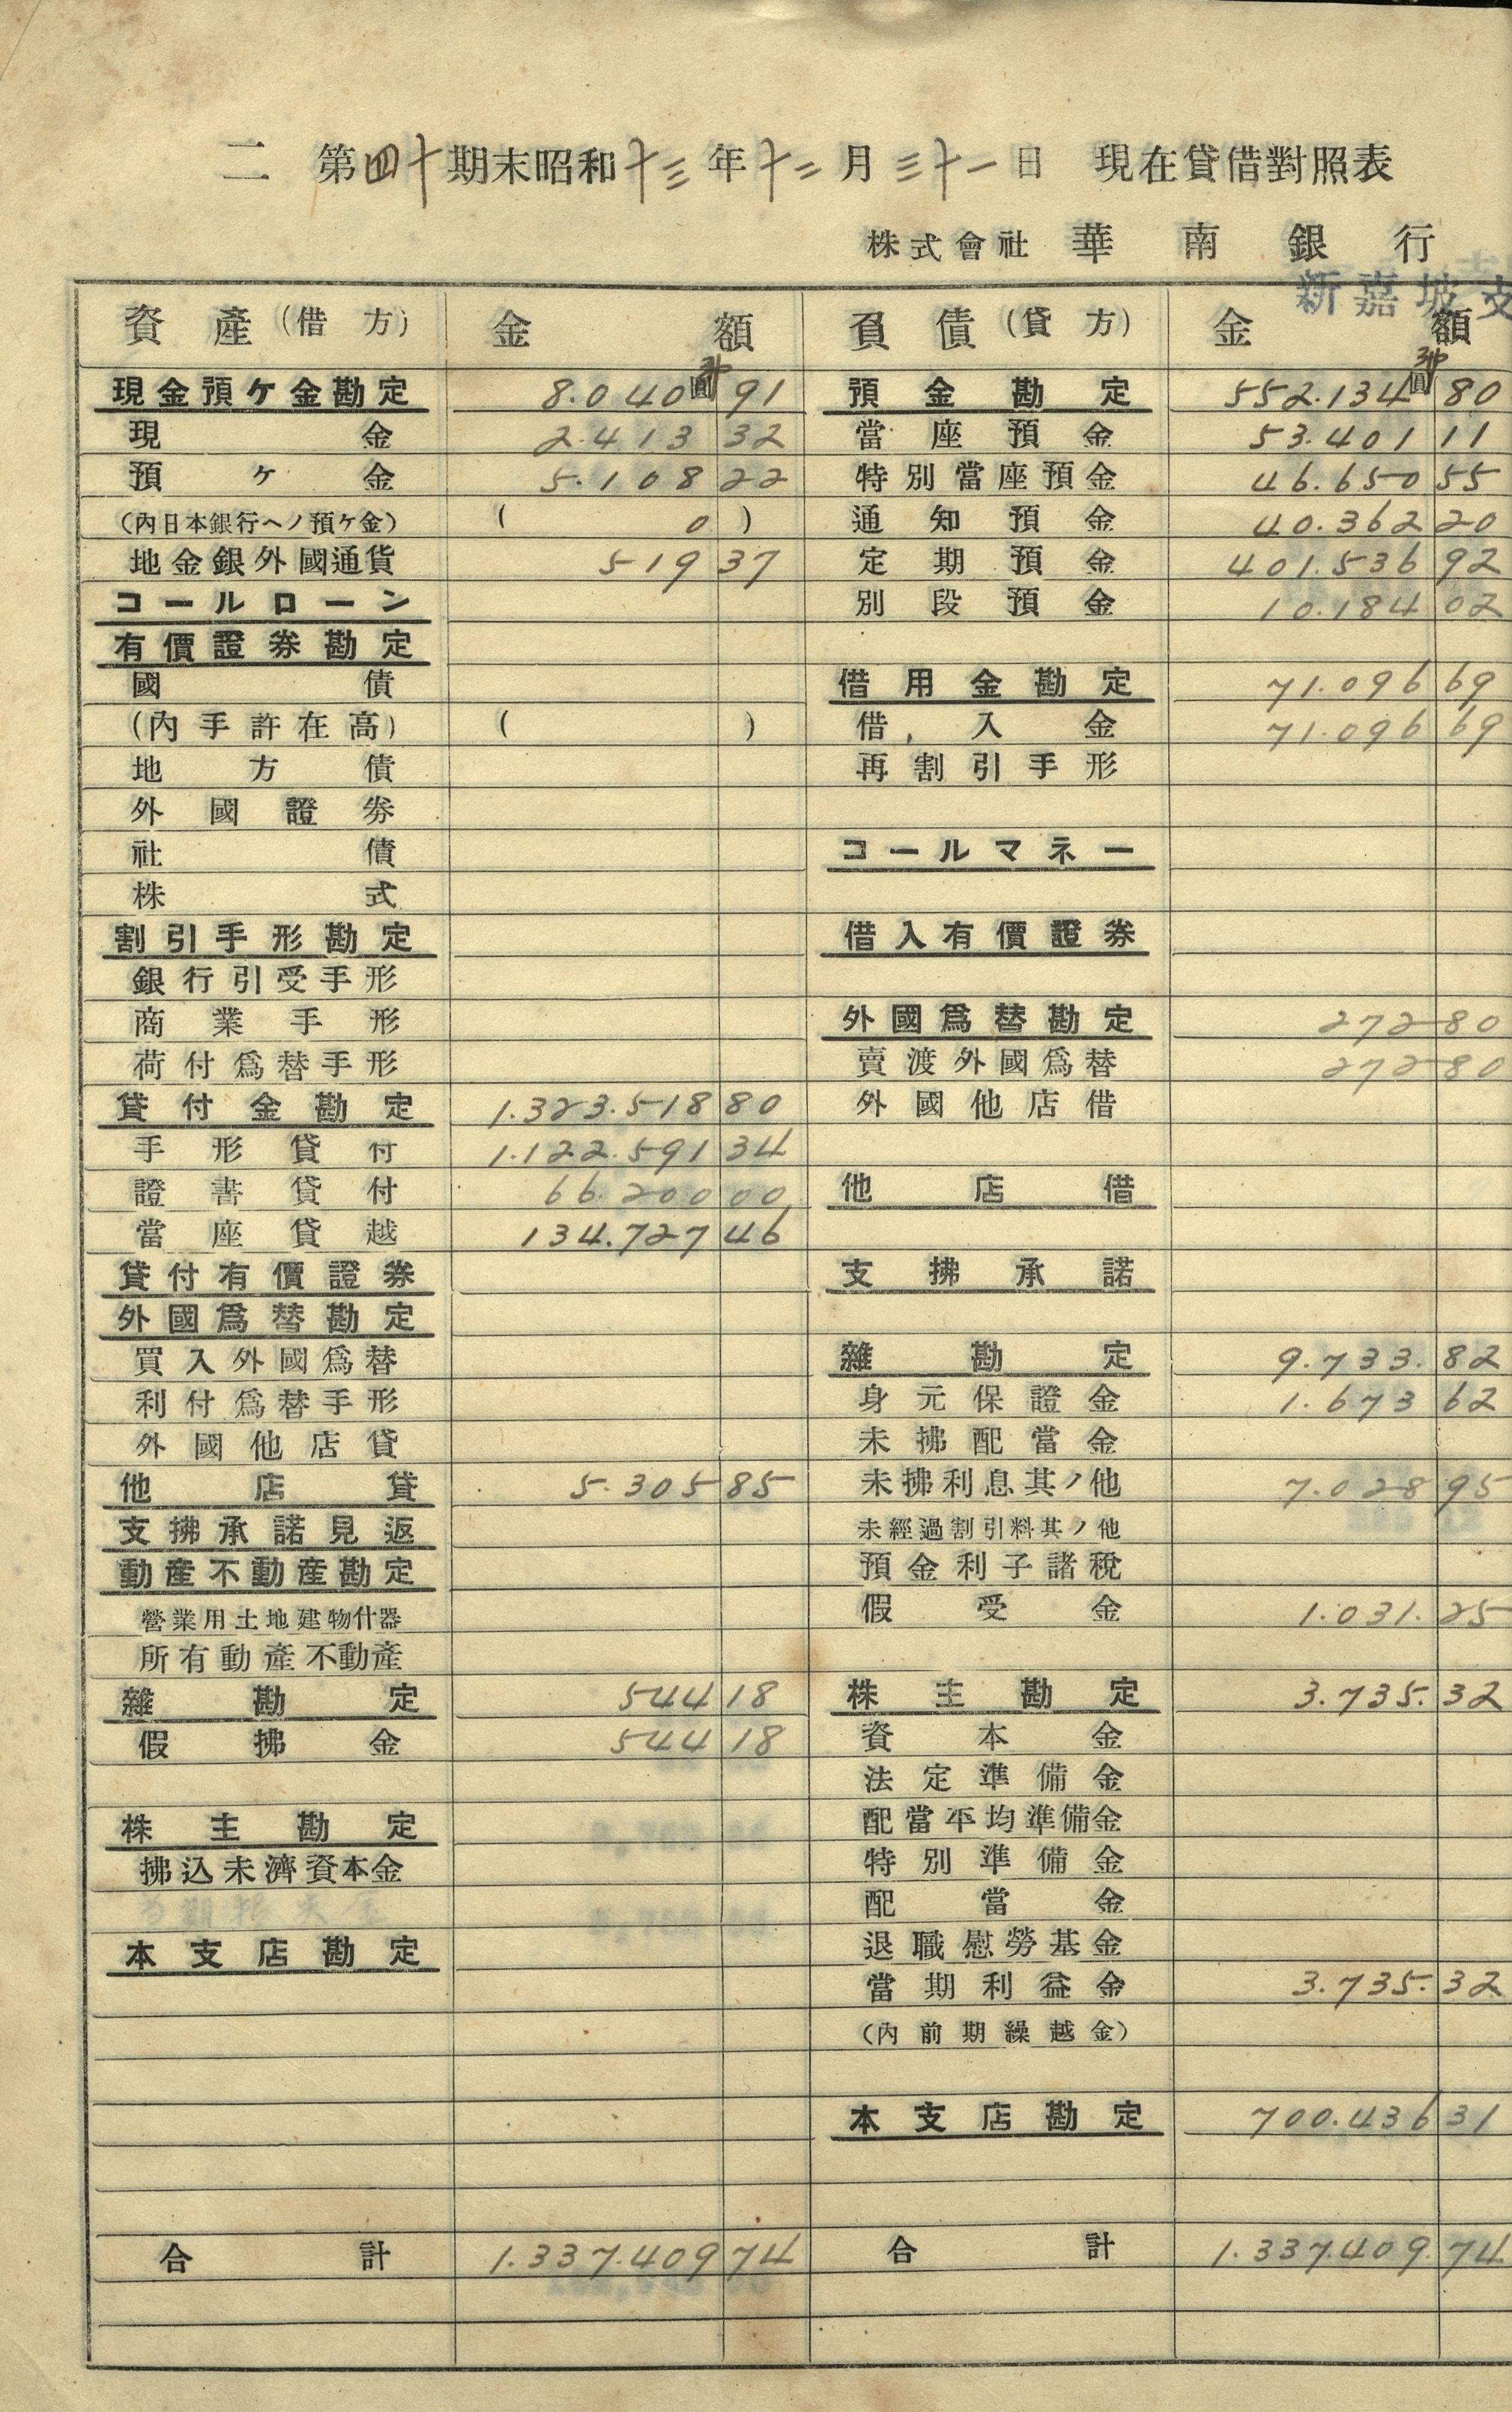 二 第四十期末昭和十三年十二月三十一日 現在貸借對照表
株式會社 華南銀行
新嘉坡支
資產(借方) 金額 負債(貸方) 金額
現金預ケ金勘定 8.040 91 預金勘定 552.134 80
現金 2.413 32 當座預金 53.401 11
預ケ金 5.108 22 特別當座預金 46.650 55
(內日本銀行ヘノ預ケ金) ( 0 ) 通知預金 40.362 20
地金銀外國通貨 519 37 定期預金 401.536 92
コールローン 別段預金 10.184 02
有價證券勘定
國債 借用金勘定 71.096 69
(內手許在高) ( ) 借入金 71.096 69
地方債 再割引手形
外國證券
社債 コールマネー
株式
割引手形勘定 借入有價證券
銀行引受手形
商業手形 外國爲替勘定 272 80
荷付爲替手形 賣渡外國爲替 272 80
貸付金勘定 1.323.518 80 外國他店借
手形貸付 1.122.591 34
證書貸付 66.200 00 他店借
當座貸越 134.727 46
貸付有價證券 支拂承諾
外國爲替勘定
買入外國爲替 雜勘定 9.733. 82
利付爲替手形 身元保證金 1.673 62
外國他店貸 未拂配當金
他店貸 5.305 85 未拂利息其ノ他 7.028 95
支拂承諾見返 未經過割引料其ノ他
動產不動產勘定 預金利子諸稅
營業用土地建物什器 假受金 1.031. 25
所有動產不動產
雜勘定 544 18 株主勘定 3.735. 32
假拂金 544 18 資本金
法定準備金
株主勘定 配當平均準備金
拂込未濟資本金 特別準備金
配當金
本支店勘定 退職慰勞基金
當期利益金 3.735. 32
(內前期繰越金)
本支店勘定 700.436 31
合計 1.337.409 74 合計 1.337.409. 74